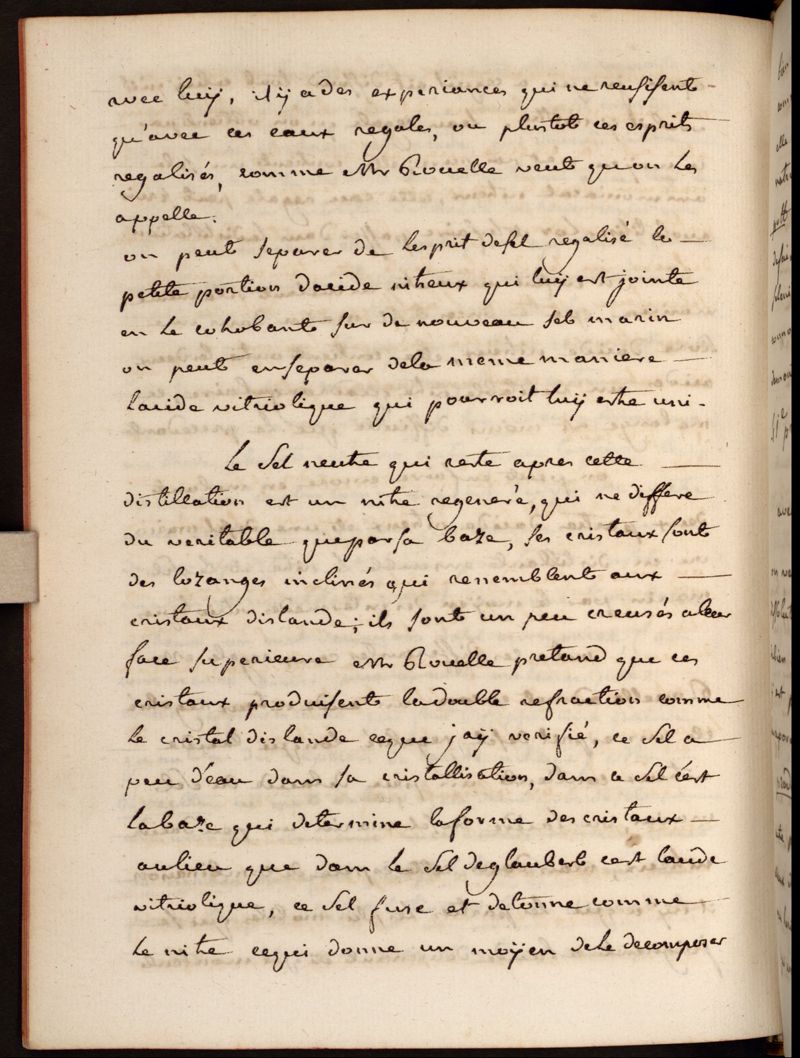 avec luÿ, il ÿ a des experiances qui ne reussisent
qu'avec ces eaux regales, ou plustot ces esprits
regalisés, comme Mr Rouelle veut qu on les
appelle.
on peut separer de lesprit desel regalisé la
petite portion dacide nitreux qui luÿ est jointe
en le cohobant sur de nouveau sel marin
on peut enseparer dela meme maniere
lacide vitriolique qui pourroit luÿ estre uni.
Le sel neutre qui reste apres cette
distillation est un nitre regeneré, qui ne differe
du veritable queparsa baze, ses cristaux sont
des lozanges inclinés qui ressemblent aux
cristaux dislande; ils sont un peu creusés aleur
face superieure Mr Rouelle pretand que ces
cristaux produisent ladouble refraction comme
le cristal dislande ceque jaÿ verifié, ce sel a
peu d'eau dans sa cristallisation, dans ce sel c'est
labaze qui determine laforme des cristaux
aulieu que dans le sel deglaubert cest lacide
vitriolique, ce sel fuse et detonne comme
le nitre cequi donne un moÿen dele decomposer